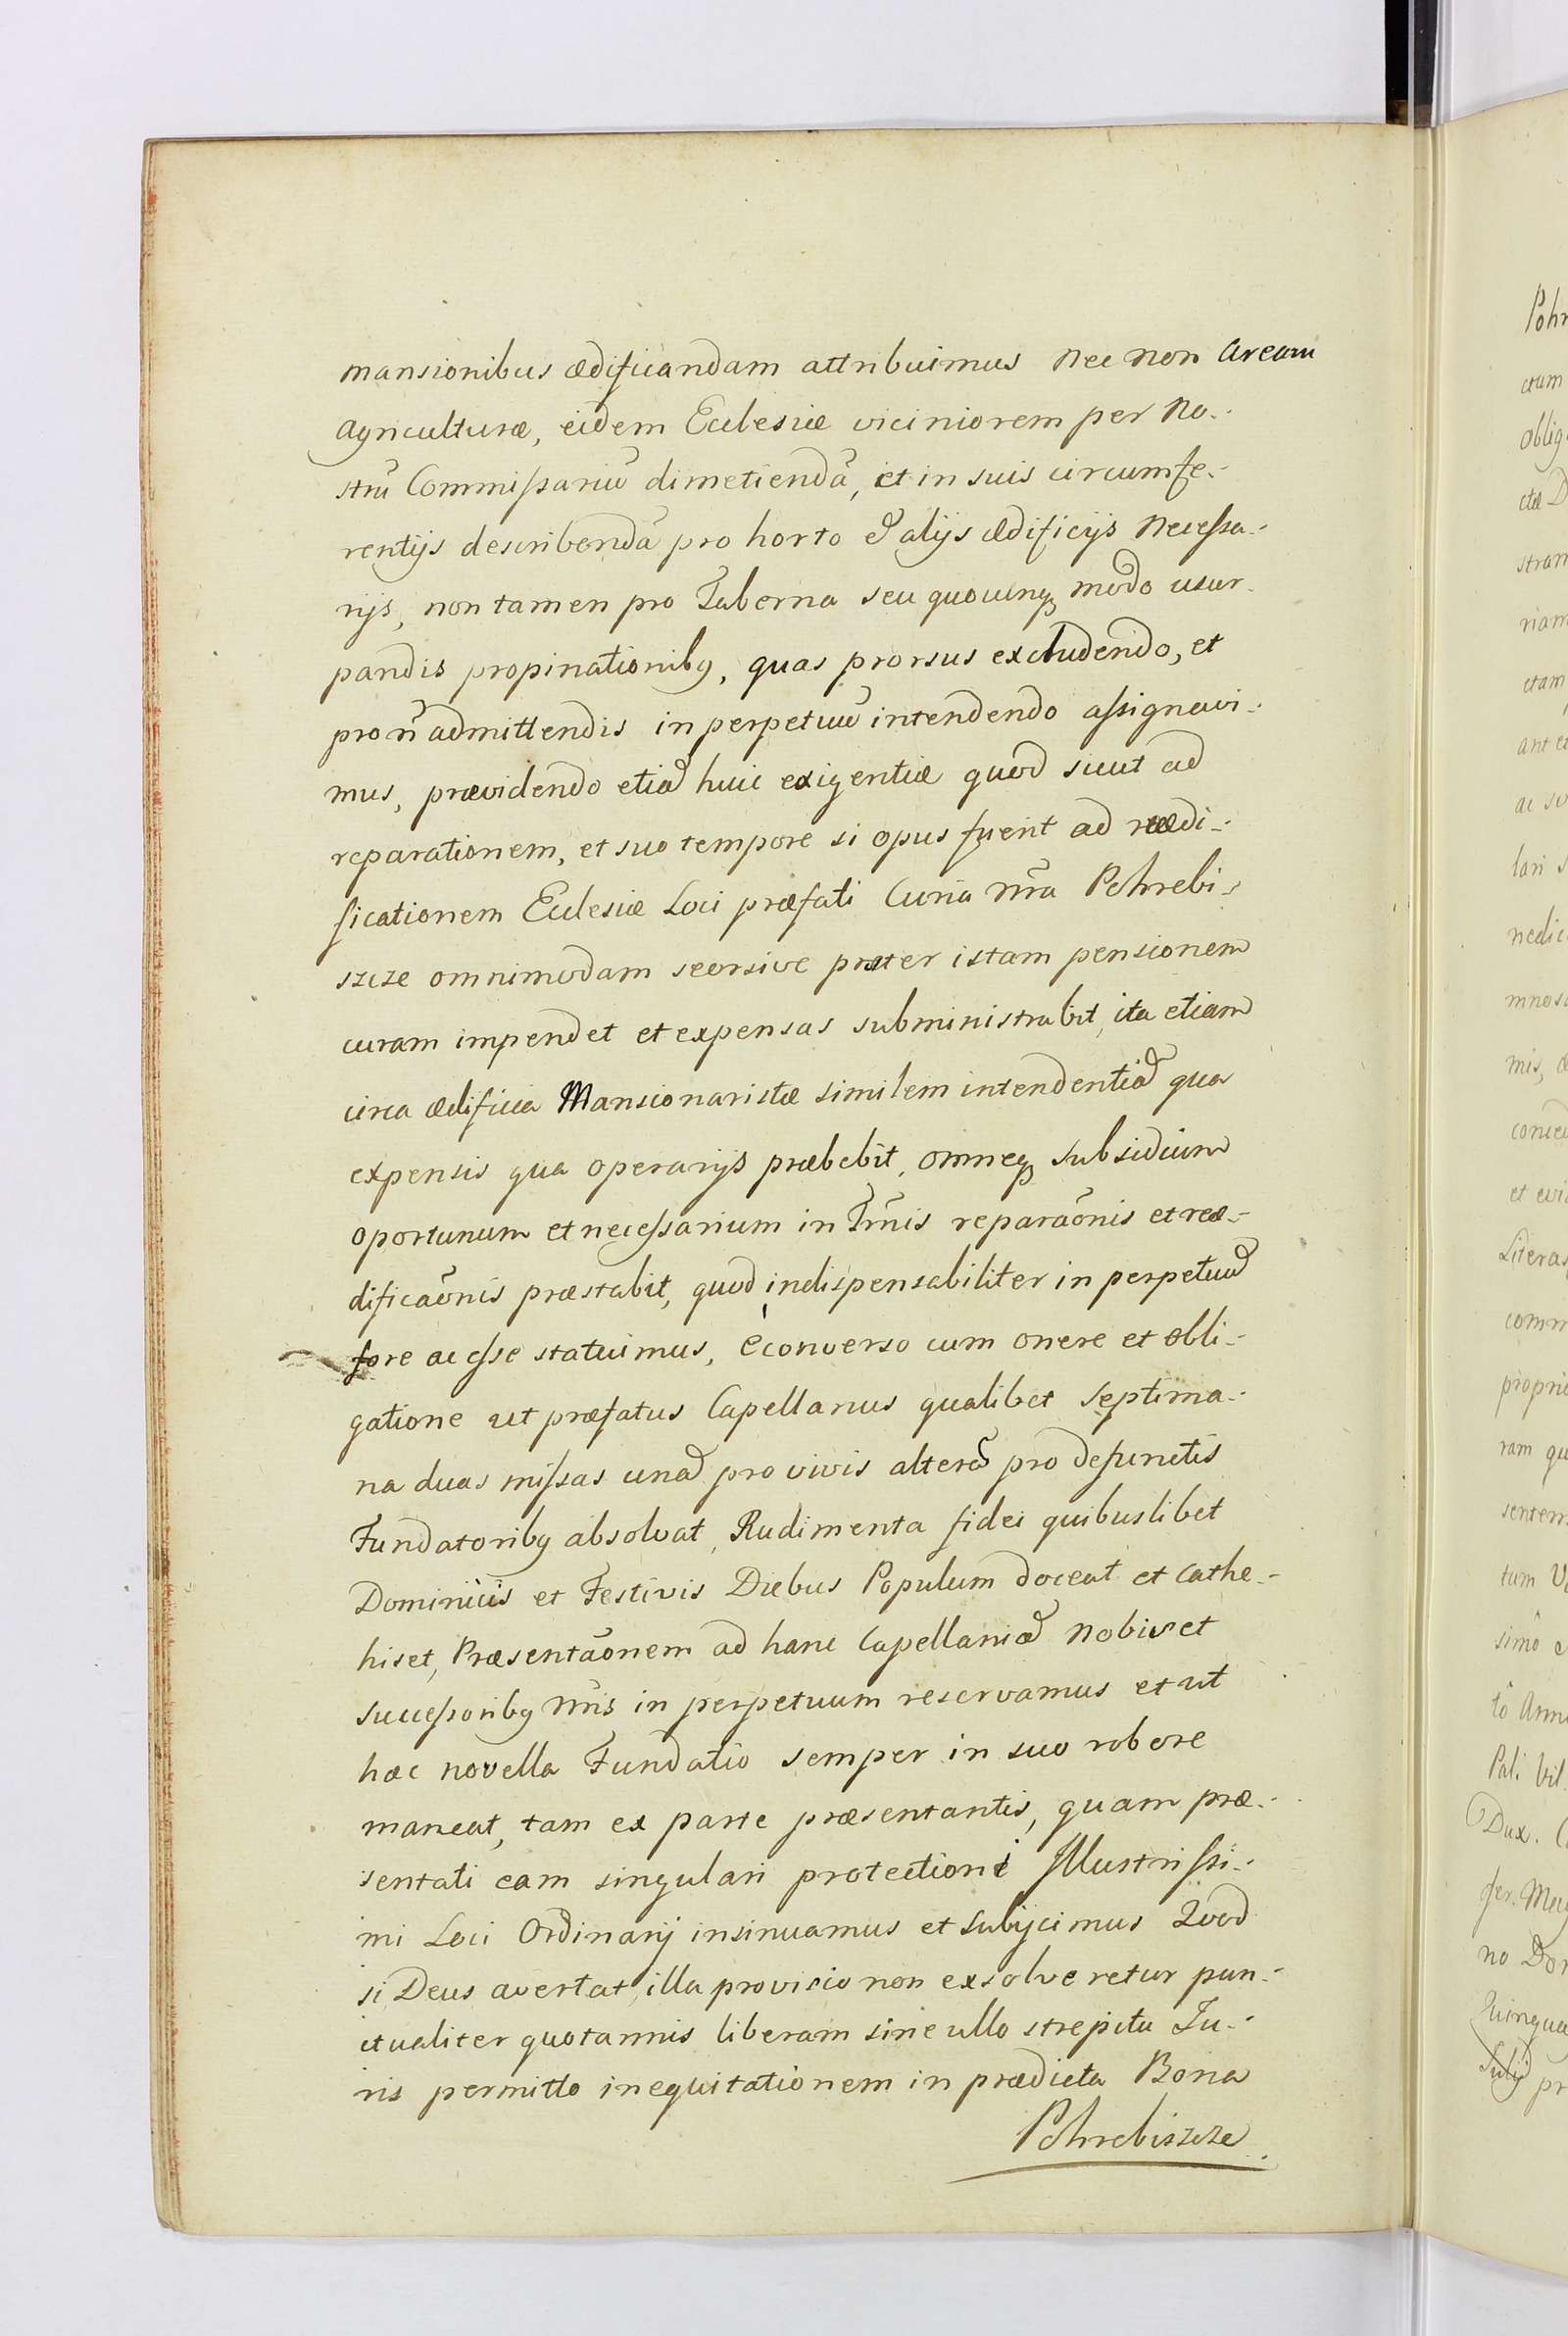 mansionibus ædificandam attribuimus nec non Aream
Agriculturæ, eidem Ecclesiæ viciniorem per No-
strũ Commissariũ dimetiendã, et in suis circumfe-
rentijs describendã pro horto et alijs ædificijs necessa-
rijs, non tamen pro Taberna seu quocunq modo usur-
pandis propinationibq, quas prorsus excludendo, et
pro ñ admittendis in perpetuũ intendendo assignavi-
mus, prævidendo etiã huic exigentiæ quod sicut ad
reparationem, et suo tempore si opus fuerit ad reædi-
ficationem Ecclesiæ Loci præfati Curia nr̃a Pohrebi-
szcze omnimodam seorsive præter istam pensionem
curam impendet et expensas subministrabit, ita etiam
circa ædificia Mansionaristæ similem intendentiã qua
expensis qua operarijs præbebit, omneq subsidium
oportunum et necessarium in Tr̃nis reparãonis et reæ-
dificãonis præstabit, quod indispensabiliter in perpetuũ
fore ac esse statuimus, è converso cum onere et obli-
gatione ut præfatus Capellanus qualibet septima-
na duas missas unã pro vivis alterã pro defunctis
Fundatoribq absolvat, Rudimenta fidei quibuslibet
Dominicis et Festivis Diebus Populum doceat et cathe-
hiset, Præsentãonem ad hanc Capellaniã nobis et
successoribq nr̃is in perpetuum reservamus et ut
hæc novella Fundatio semper in suo robore
maneat, tam ex parte præsentantis, quam præ-
sentati eam singulari protectioni Illustrissi-
mi Loci Ordinarij insinuamus et subijcimus Quod
si Deus avertat, illa provisio non exsolveretur pun-
ctualiter quotannis liberam sine ullo strepitu Ju-
ris permitto inequitationem in prædicta Bona
Pohrebiszcze